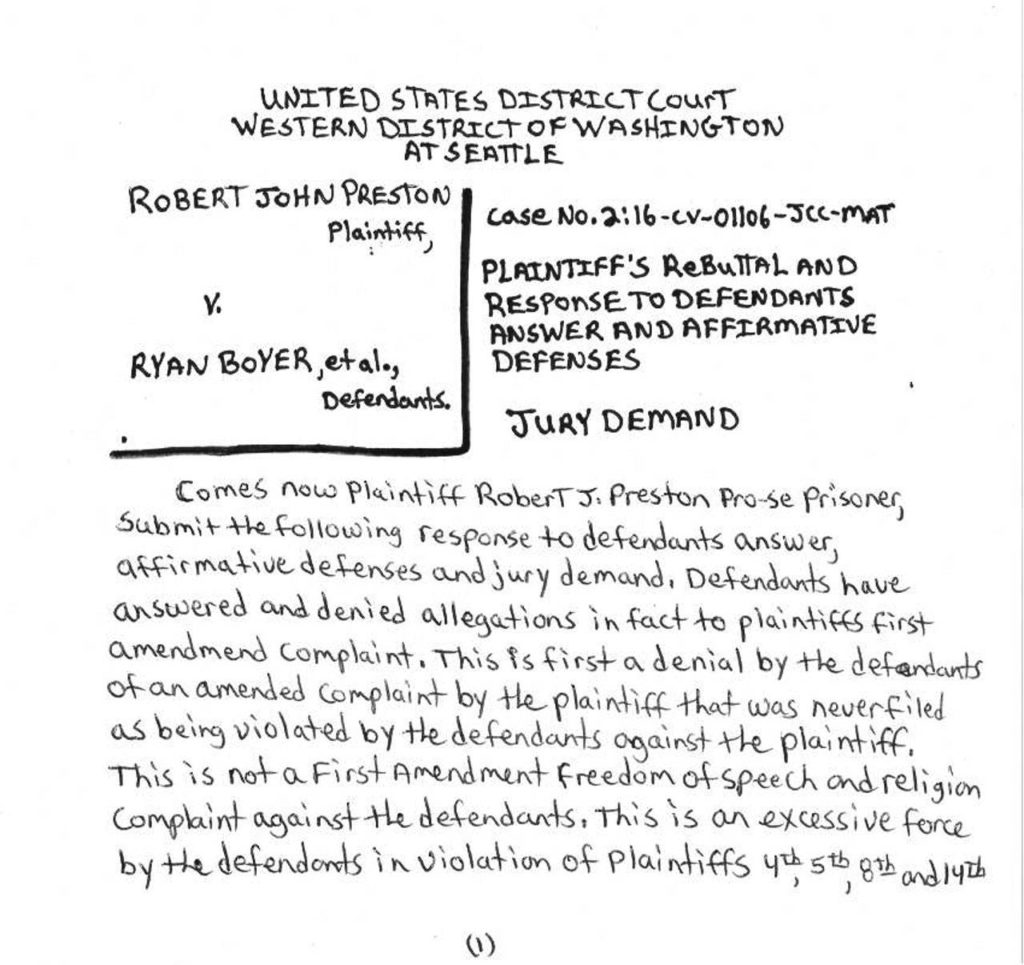 UNITED STATES DISTRICT COURT
WESTERN DISTRICT OF WASHINGTON
AT SEATTLE
ROBERT JOHN PRESTON
Plaintiff,
v.
RYAN BOYER, et al.,
Defendants.
Case No. 2:16-cv-01106-JCC-MAT
PLAINTIFF'S REBUTTAL AND
RESPONSE TO DEFENDANTS
ANSWER AND AFFIRMATIVE
DEFENSES
JURY DEMAND
Comes now Plaintiff Robert J. Preston Pro-se Prisoner,
Submit the following response to defendants answer,
affirmative defenses and jury demand. Defendants have
answered and denied allegations in fact to plaintiffs first
amendmend Complaint. This is first a denial by the defendants
of an amended Complaint by the plaintiff that was never filed
as being violated by the defendants against the plaintiff.
This is not a First Amendment Freedom of speech and religion
Complaint against the defendants. This is an excessive force
by the defendants in violation of Plaintiffs 4th, 5th, 8th and 14th
(1)